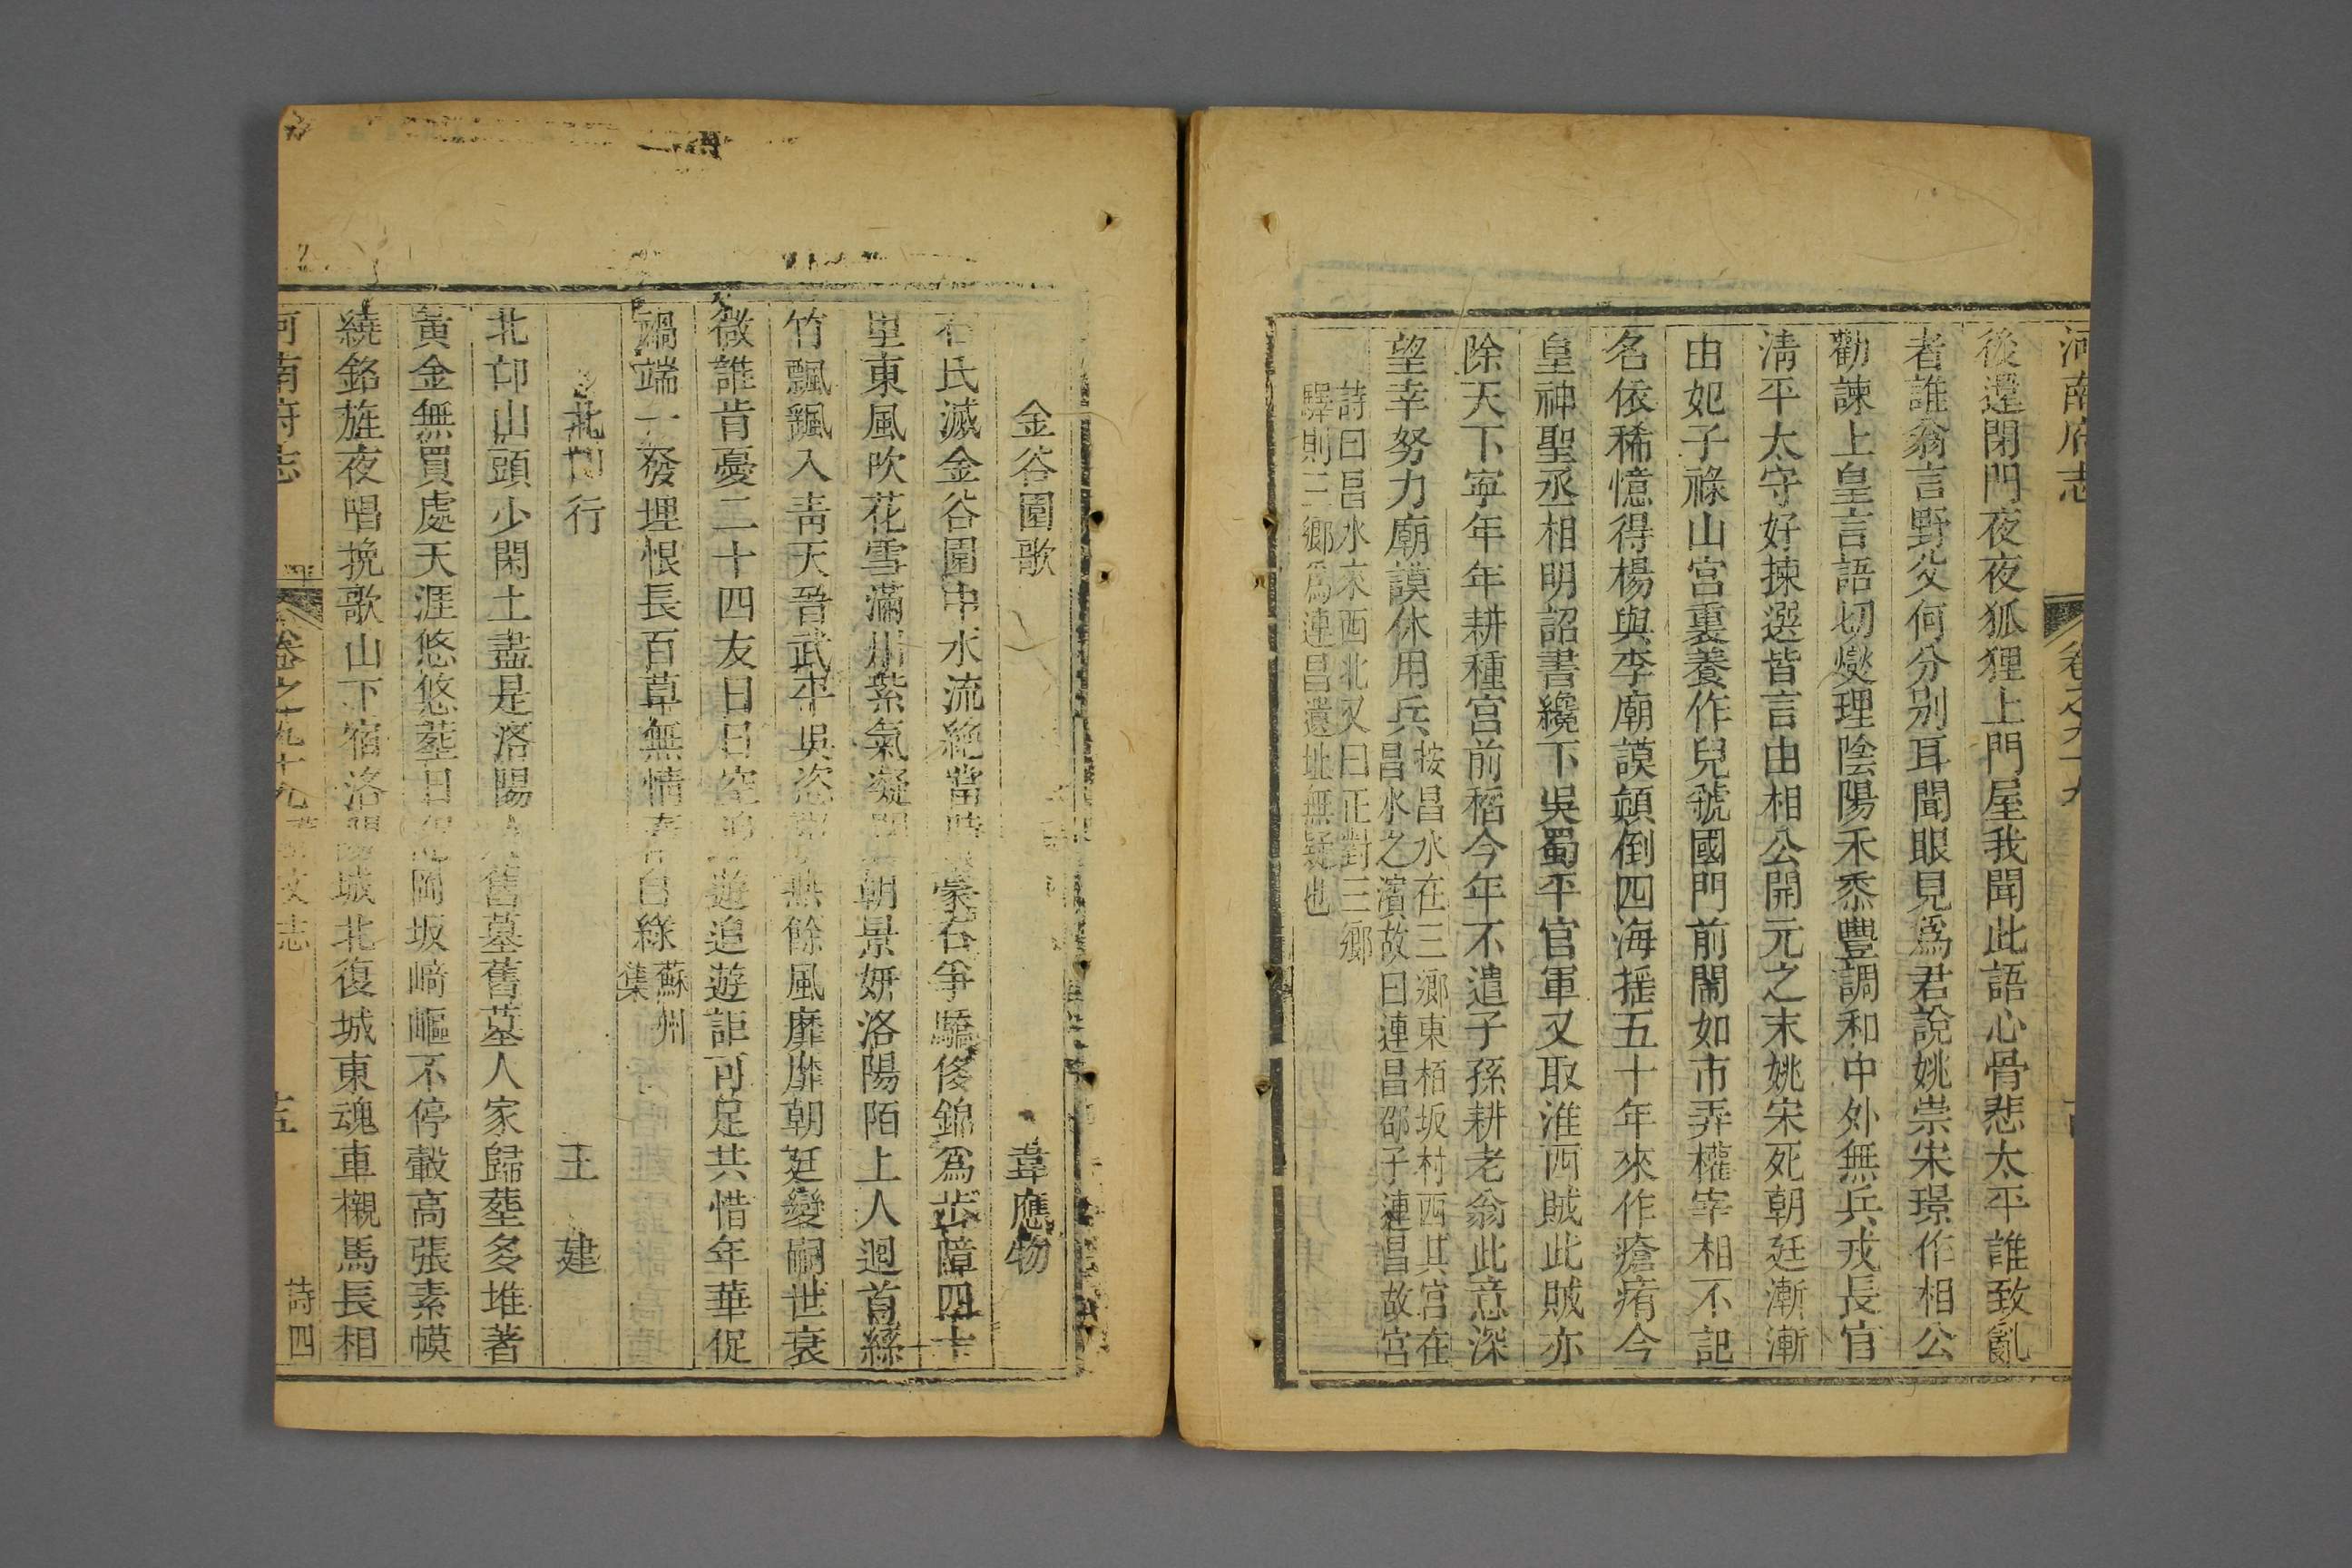 河南府志
卷之九十九
後還閉門夜夜狐狸上門屋我聞此語心骨悲太平誰致亂
者誰翁言野父何分別耳聞眼見爲君說姚崇宋璟作相公
勸諫上皇言語切燮理陰陽禾黍豐調和中外無兵戎長官
清平太守好揀選皆言由相公開元之末姚宋死朝廷漸漸
由妃子祿山宮裏養作兒虢國門前鬧如市弄權宰相不記
名依稀憶得楊與李廟謨顛倒四海搖五十年來作瘡痏今
皇神聖丞相明詔書纔下吳蜀平官軍又取淮西賊此賊亦
除天下寧年年耕種宮前稻今年不遣子孫耕老翁此意深
望幸努力廟謨休用兵
按昌水在三鄉東栢坂村西其宮在
昌水之濱故曰連昌邵子連昌故宮
詩曰昌水來西北又曰正對三鄉
驛則三鄉爲連昌遺址無疑也
金谷園歌
韋應物
石氏滅金谷園中水流絕當時豪右爭驕侈錦爲步障四十
里東風吹花雪滿川紫氣凝朝景妍洛陽陌上人迴首絲
竹飄颻入青天晉武平吳恣無餘風靡靡朝廷變嗣世衰
微誰肯憂二十四友日日空遊追遊詎可足共惜年華促
禍端一發埋恨長百草無情春自綠
蘇州
集
北邙行
王建
北邙山頭少閑土盡是洛陽人舊墓舊墓人家歸葬多堆著
黃金無買處天涯悠悠葬日岡坂崎嶇不停轂高張素幙
繞銘旌夜唱挽歌山下宿洛陽城北復城東魂車櫬馬長相
河南府志
卷之九十九
藝文志
詩四
五